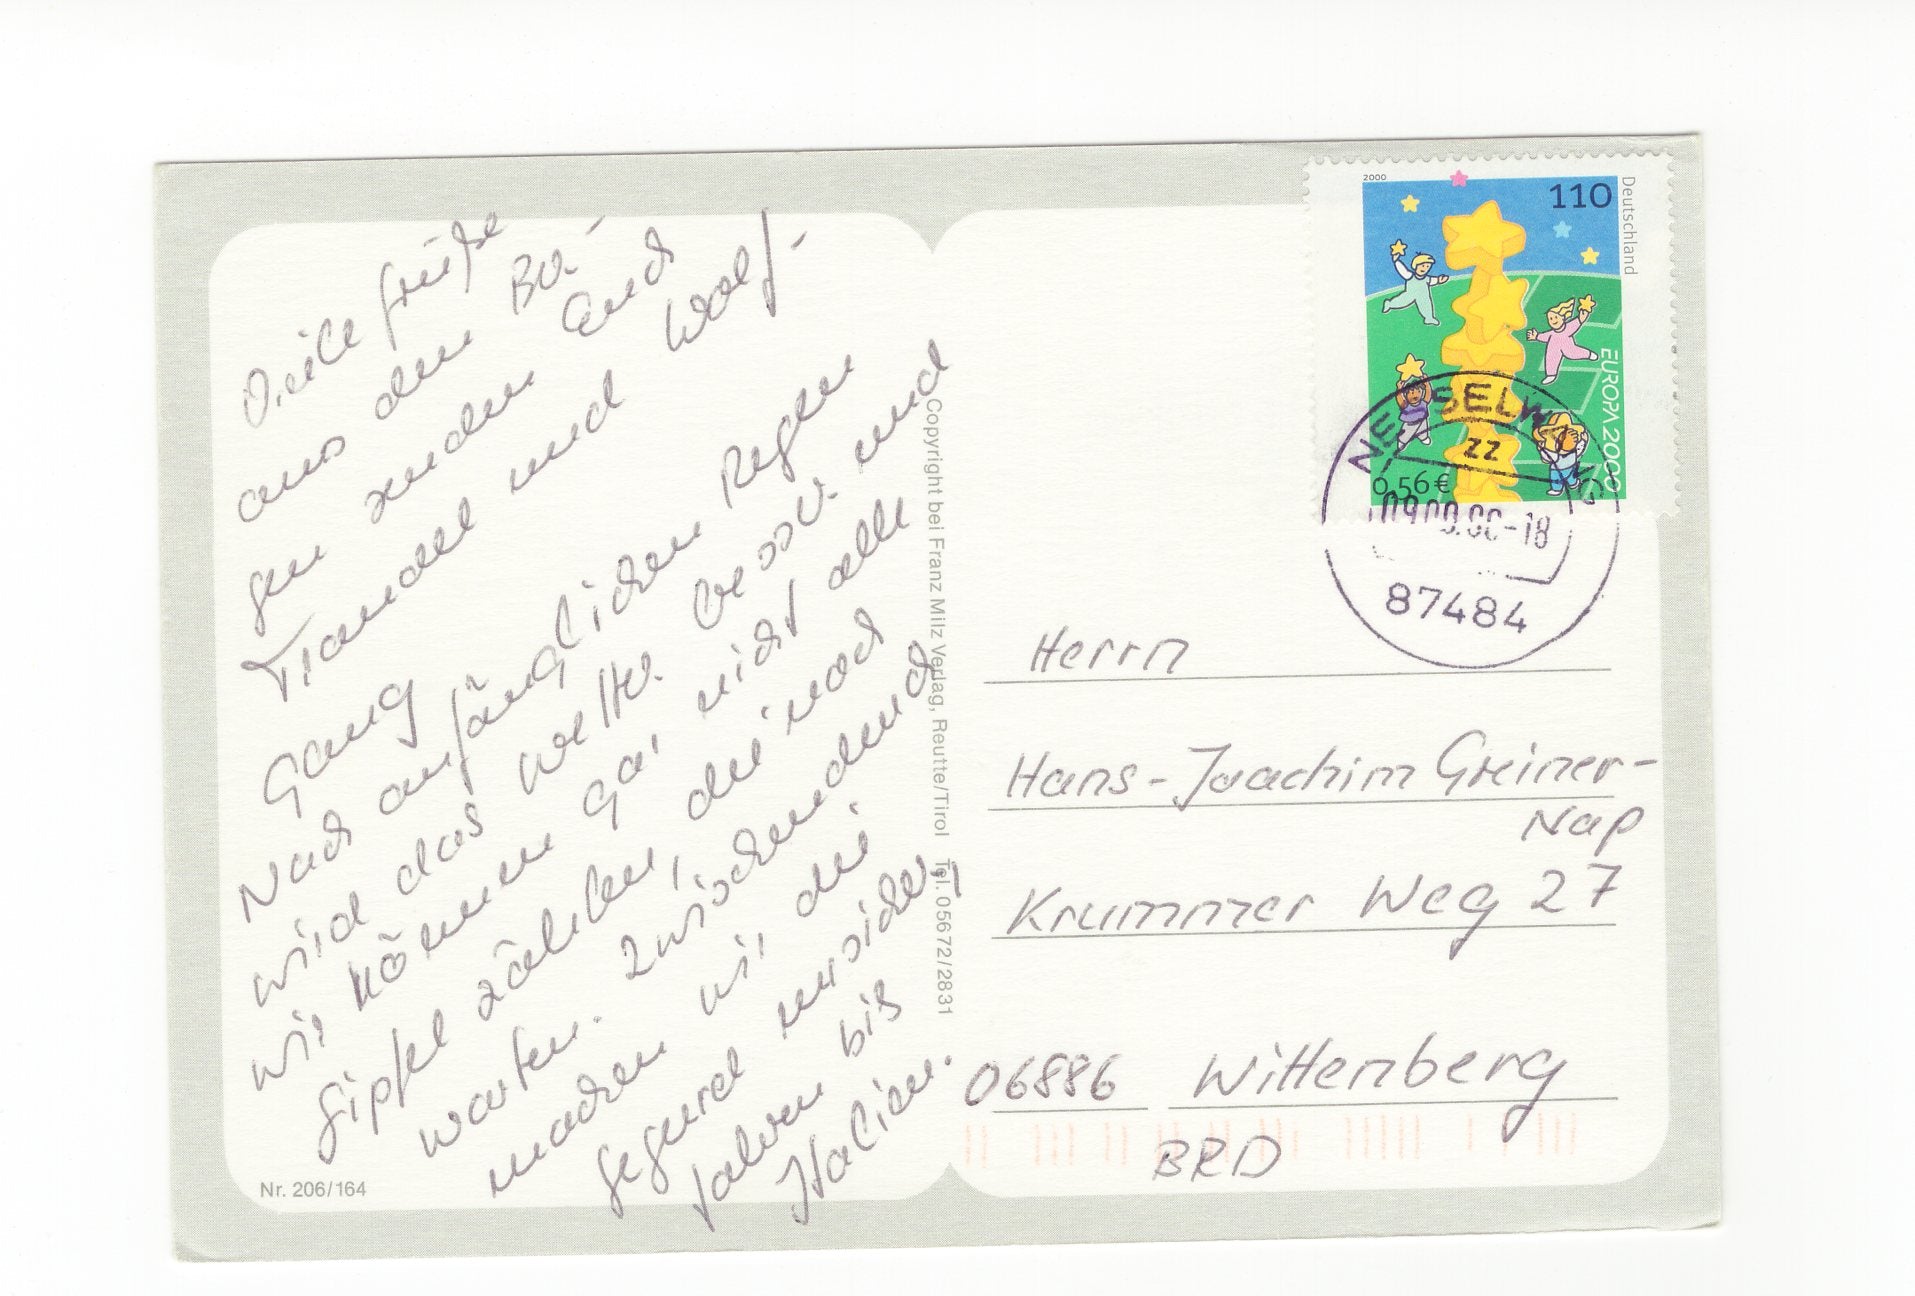 Viele Grüße
aus den Ber-
gen senden Euch
Traudel und Wolf-
gang
Nach anfänglichen Regen
wird das Wetter besser und
wir können gar nicht alle
Gipfel zählen, die noch
warten. Zwischendurch
machen wir die
Gegend unsicher,
fahren bis
Italien.
Nr. 206/164
Copyright bei Franz Milz Verlag, Reutte/Tirol Tel. 05672/2831
2000
110
Deutschland
EUROPA 2000
0,56€
NESSELWANG
ZZ
-18
87484
Herrn
Hans-Joachim Greiner-
Nap
Krummer Weg 27
06886 Wittenberg
BRD